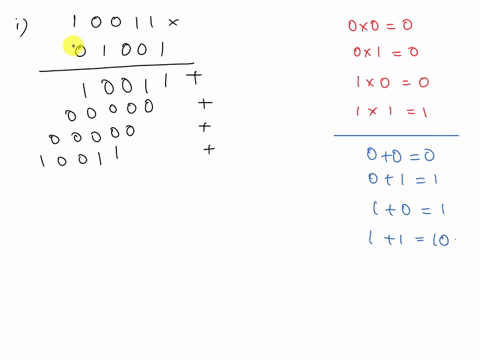 i) 1 0 0 1 1 ×
0 1 0 0 1
1 0 0 1 1 +
0 0 0 0 0 +
0 0 0 0 0 +
1 0 0 1 1 +
0×0 = 0
0×1 = 0
1×0 = 0
1×1 = 1
0+0 = 0
0+1 = 1
1+0 = 1
1+1 = 10.